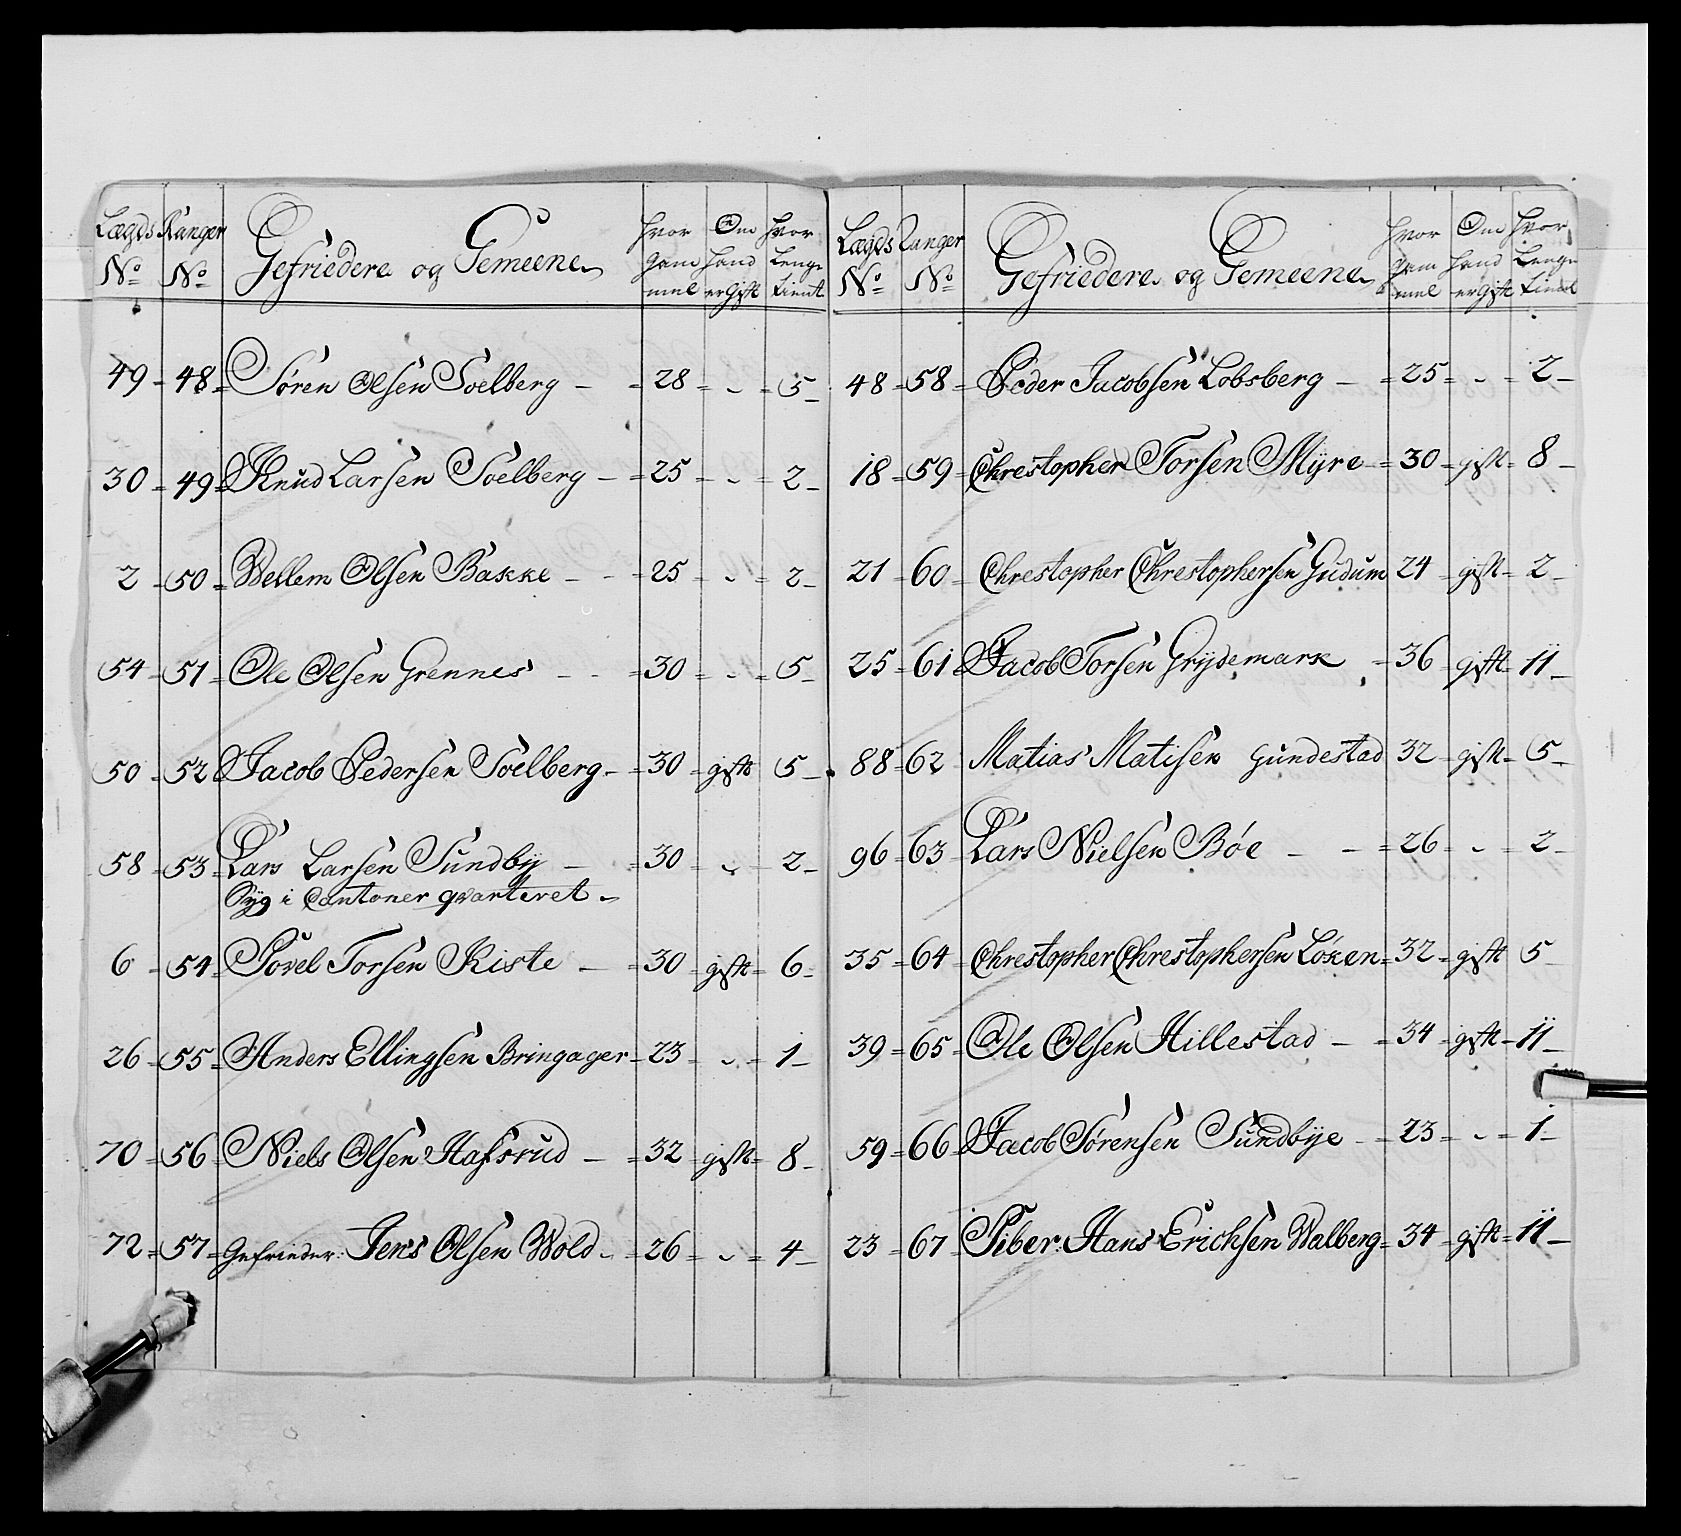 Lægds No Ranger No Gefriedere og Gemeene Hvor Gammel Om Hand er Gift Hvor Lenge tient
49 - 48 - Sören Olsen Soelberg - 28 - „ - 5 -
30 - 49 - Knud Larsen Soelberg - 25 - „ - 2 -
2 - 50 - Wellem Olsen Bakke - 25 - „ - 2 -
54 - 51 - Ole Olsen Grennes - 30 - „ - 5 -
50 - 52 - Jacob Pedersen Soelberg - 30 - gift - 5 -
58 - 53 - Lars Larsen Sundbÿ - 30 - „ - 2 -
Syg i Cantoner qvarteret -
6 - 54 - Povel Torsen Kiste - 30 - gift - 6 -
26 - 55 - Anders Ellingsen Bringager - 23 - „ - 1 -
70 - 56 - Niels Olsen Hafsrud - 32 - gift - 8 -
72 - 57 - Gefrieder: Jens Olsen Wold - 26 - „ - 4 -
Lægds No Ranger No Gefriedere og Gemeene Hvor Gammel Om Hand er Gift Hvor Lenge tient
48 - 58 - Peder Jacobsen Lobsberg - 25 - „ - 2 -
18 - 59 - Chrestopher Torsen Mÿre - 30 - gift - 8 -
21 - 60 - Chrestopher Chrestophersen Gudum 24 - gift - 2 -
25 - 61 - Jacob Torsen Grÿdemark - 36 - gift - 11 -
88 - 62 Matias Matisen Gundestad 32 - gift - 5 -
96 - 63 - Lars Nielsen Bøe - 26 - „ - 2 -
35 - 64 - Chrestopher Chrestophersen Løken - 32 - gift 5 -
39 - 65 - Ole Olsen Hillestad - 34 - gift - 11 -
59 - 66 - Jacob Sørensen Sundbÿe - 23 - „ - 1 -
23 - 67 Piber: Hans Erichsen Walberg - 34 - gift - 11 -